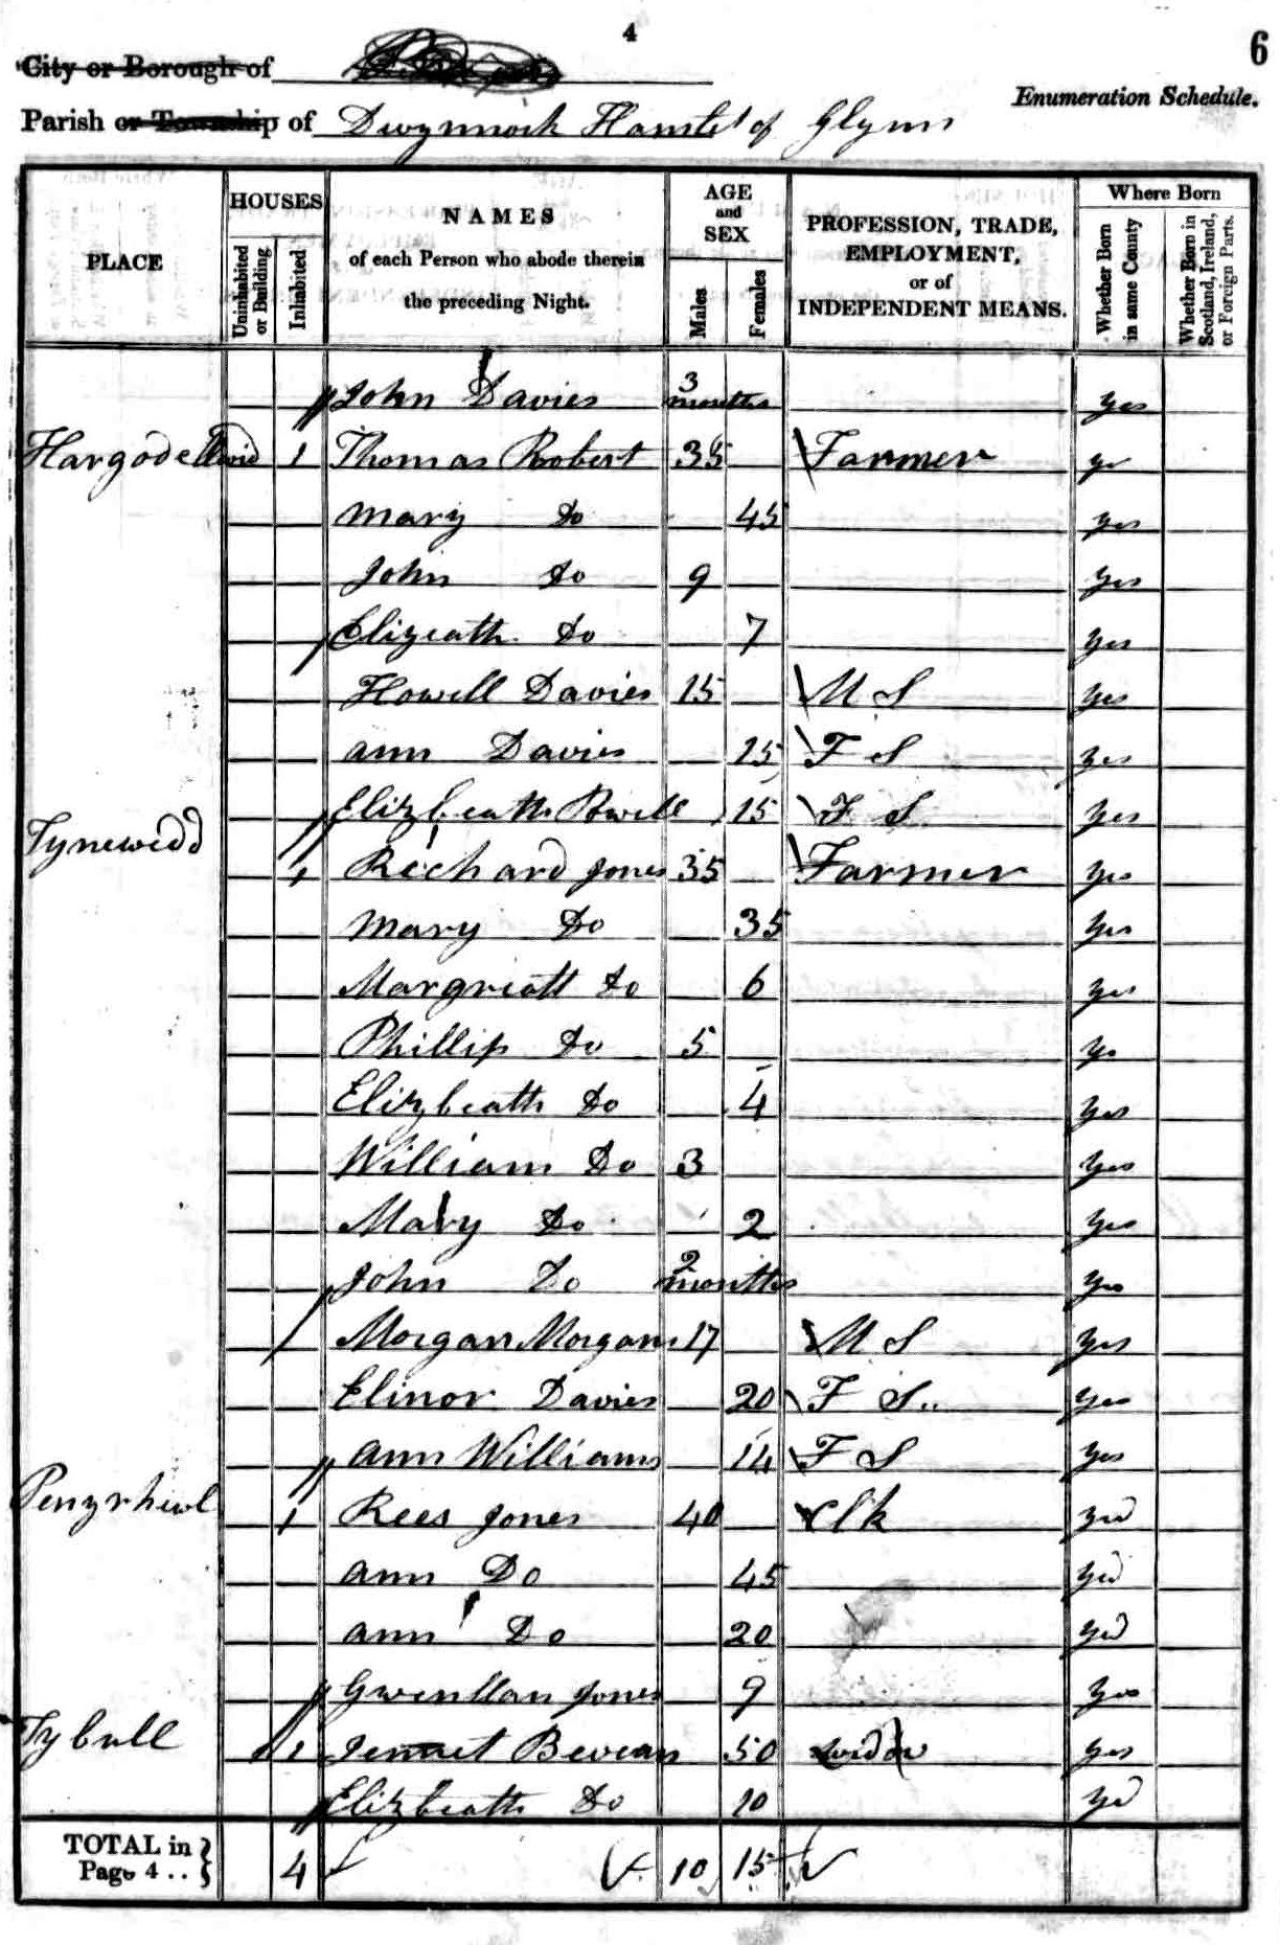 4
6
City or Borough of
Enumeration Schedule.
Parish or Township of Devynnock Hamlet of Glynn
PLACE
HOUSES
Uninhabited or Building
Inhabited
NAMES
of each Person who abode therein
the preceding Night.
AGE
and
SEX
Males
Females
PROFESSION, TRADE,
EMPLOYMENT,
or of
INDEPENDENT MEANS.
Where Born
Whether Born in same County
Whether Born in Scotland, Ireland, or Foreign Parts.
John Davies 3 months yes
1 Thomas Robert 35 Farmer ye
Mary Do 45 yes
John Do 9 yes
Elizeath Do 7 yes
Howell Davies 15 M S yes
ann Davies 15 F S yes
Elizbeath Powell 15 F S yes
Tynewedd 1 Richard Jones 35 Farmer yes
Mary Do 35 yes
Margreatt Do 6 yes
Phillip Do 5 ys
Elizbeath Do 4 yes
William Do 3 yes
Mary Do 2 yes
John Do 2 months yes
Morgan Morgans 17 M S yes
Elinor Davies 20 F S.. yes
ann Williams 14 F S yes
Penyrhewl 1 Rees Jones 40 Clk yes
ann Do 45 yes
ann Do 20 yes
Gwenllan Jones 9 yes
Tybull 1 Jennet Bevean 50 widow yes
Elizbeath Do 10 yes
TOTAL in Page 4 .. } 4 10 15